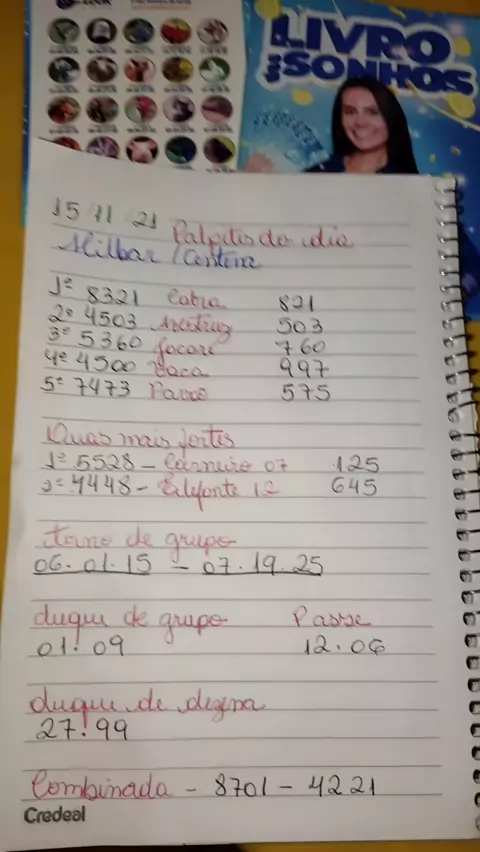 LIVRO
DOS SONHOS
15/11/21 Palpites do dia
Milhar / Centena
1º 8321 Cabra 821
2º 4503 Avestruz 503
3º 5360 Jacaré 760
4º 4500 Vaca 997
5º 7473 Pavão 575
Duas mais fortes
1º 5528 - Carneiro 07 125
2º 4448 - Elefante 12 645
terno de grupo
06.01.15 - 07.19.25
duque de grupo Passe
01.09 12.06
duque de dezena
27.99
Combinada - 8701 - 4221
Credeal